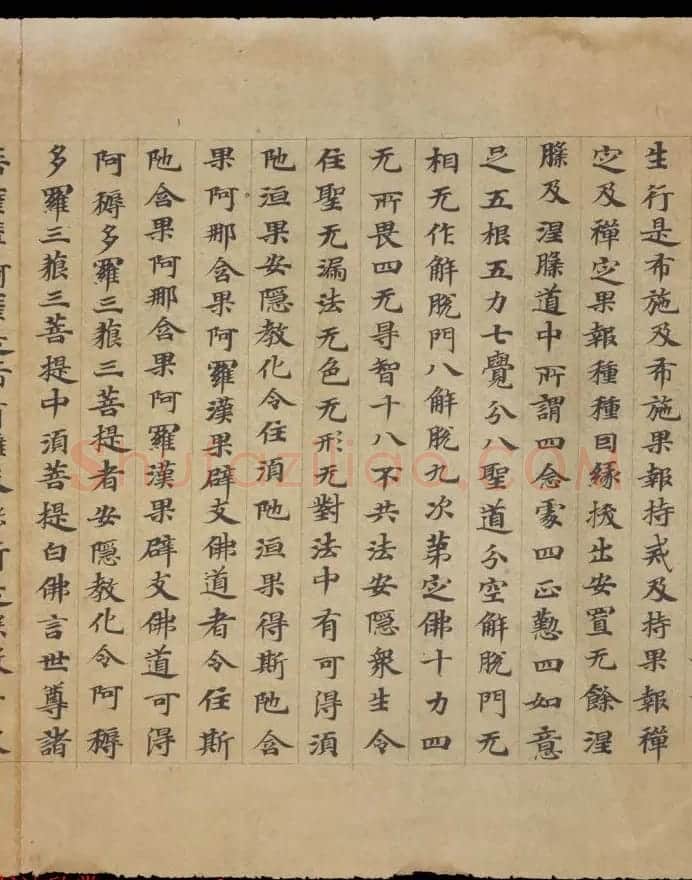 生行是布施及布施果報持戒及持果報禪
定及禪定果報種種因緣拔出安置无餘涅
槃及涅槃道中所謂四念處四正懃四如意
足五根五力七覺分八聖道分空解脫門无
相无作解脫門八解脫九次第定佛十力四
无所畏四无㝵智十八不共法安隱眾生令
住聖无漏法无色无形无對法中有可得須
陁洹果安隱教化令住須陁洹果得斯陁含
果阿那含果阿羅漢果辟支佛道者令住斯
陁含果阿那含果阿羅漢果辟支佛道可得
阿耨多羅三藐三菩提者安隱教化令阿耨
多羅三藐三菩提中須菩提白佛言世尊諸
Shufaziliao.COM